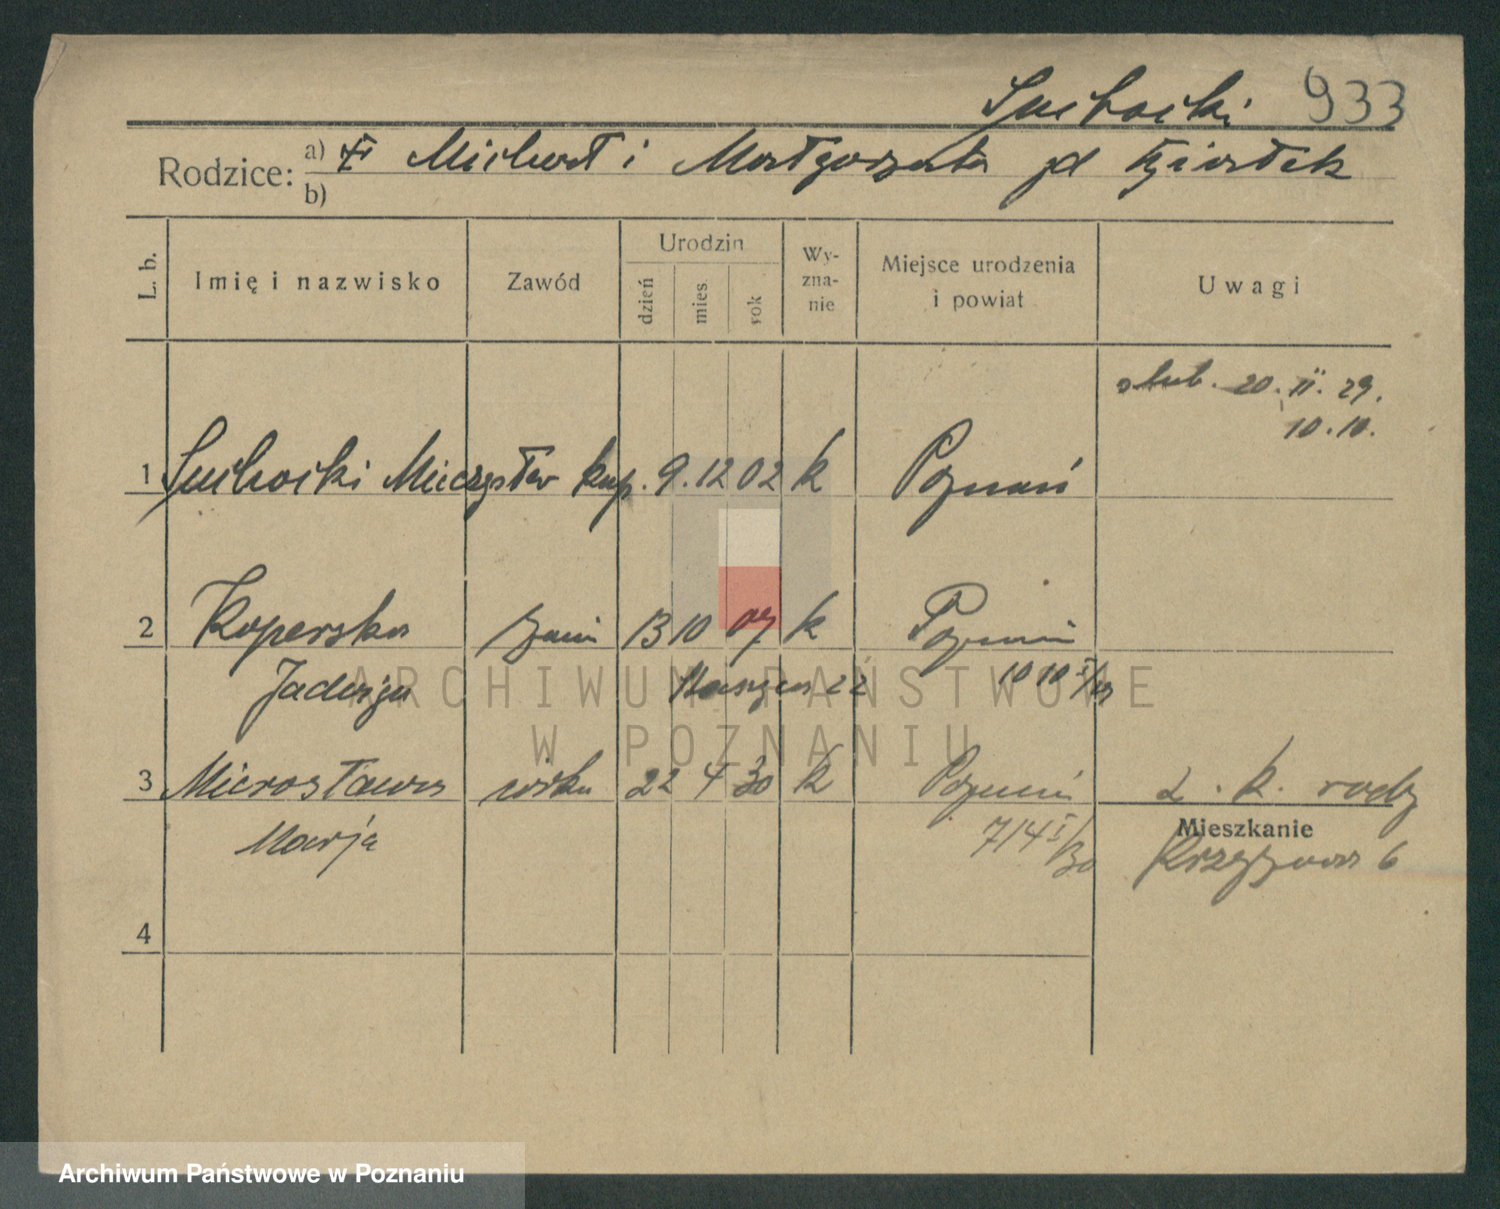 Suchocki 933
Rodzice: a) Michał i Małgorzata zd
b)
L. b. Imię i nazwisko Zawód Urodzin Wy-zna-nie Miejsce urodzenia i powiat Uwagi
dzień mies rok
ślub. 20. II. 29.
10.10.
1 Suchocki Mieczysław kup. 9. 12 02 k Poznań
2 Koperska żona 13 10 07 k Poznań
Jadwiga 22 10 10
3 Mirosława córka 22 4 30 k Poznań 2. k. rodz
Marja 7/4 I/30 Mieszkanie
6
4
ARCHIWUM PAŃSTWOWE
W POZNANIU
Archiwum Państwowe w Poznaniu